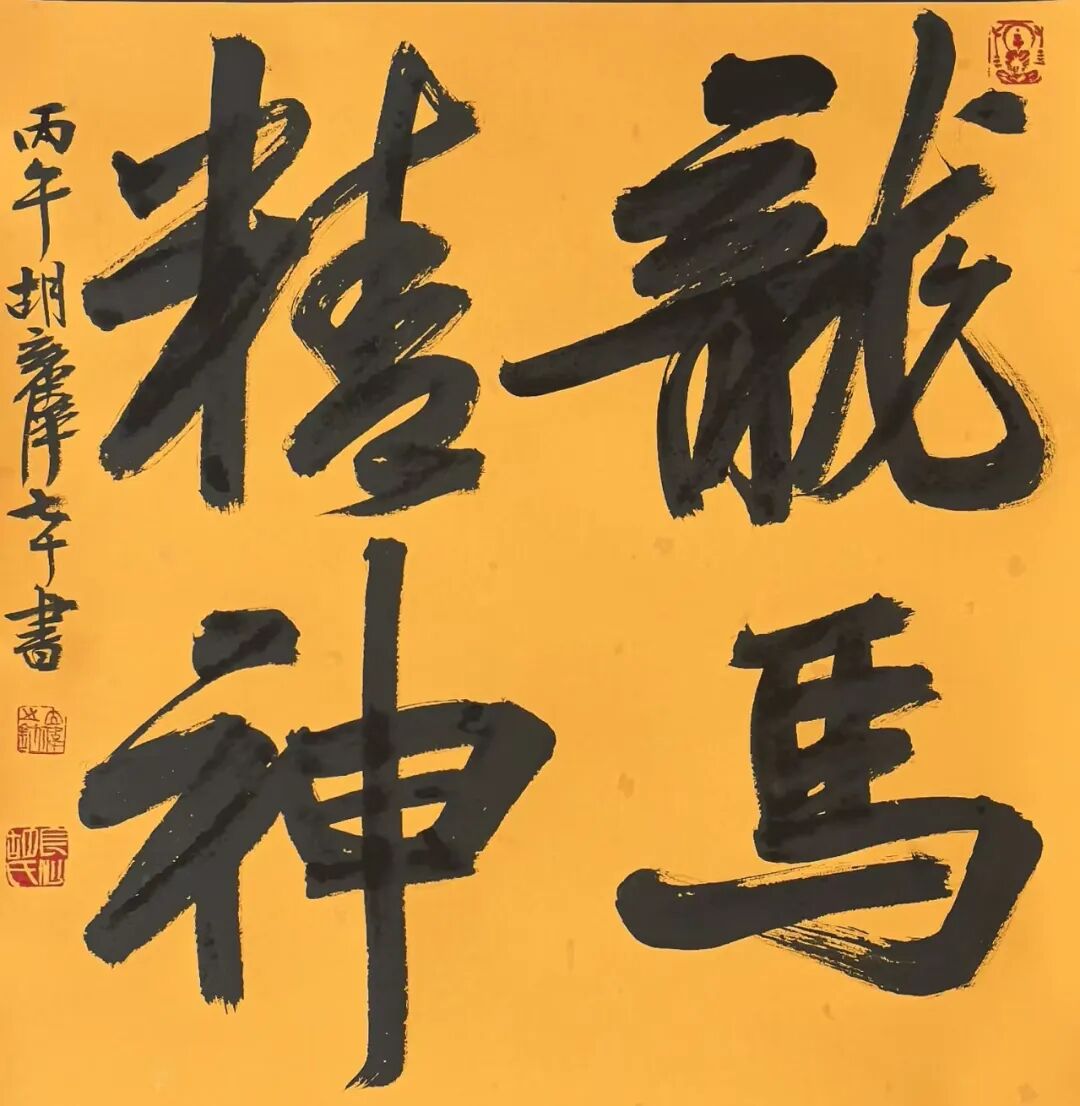 龍馬
精神
丙午胡
書